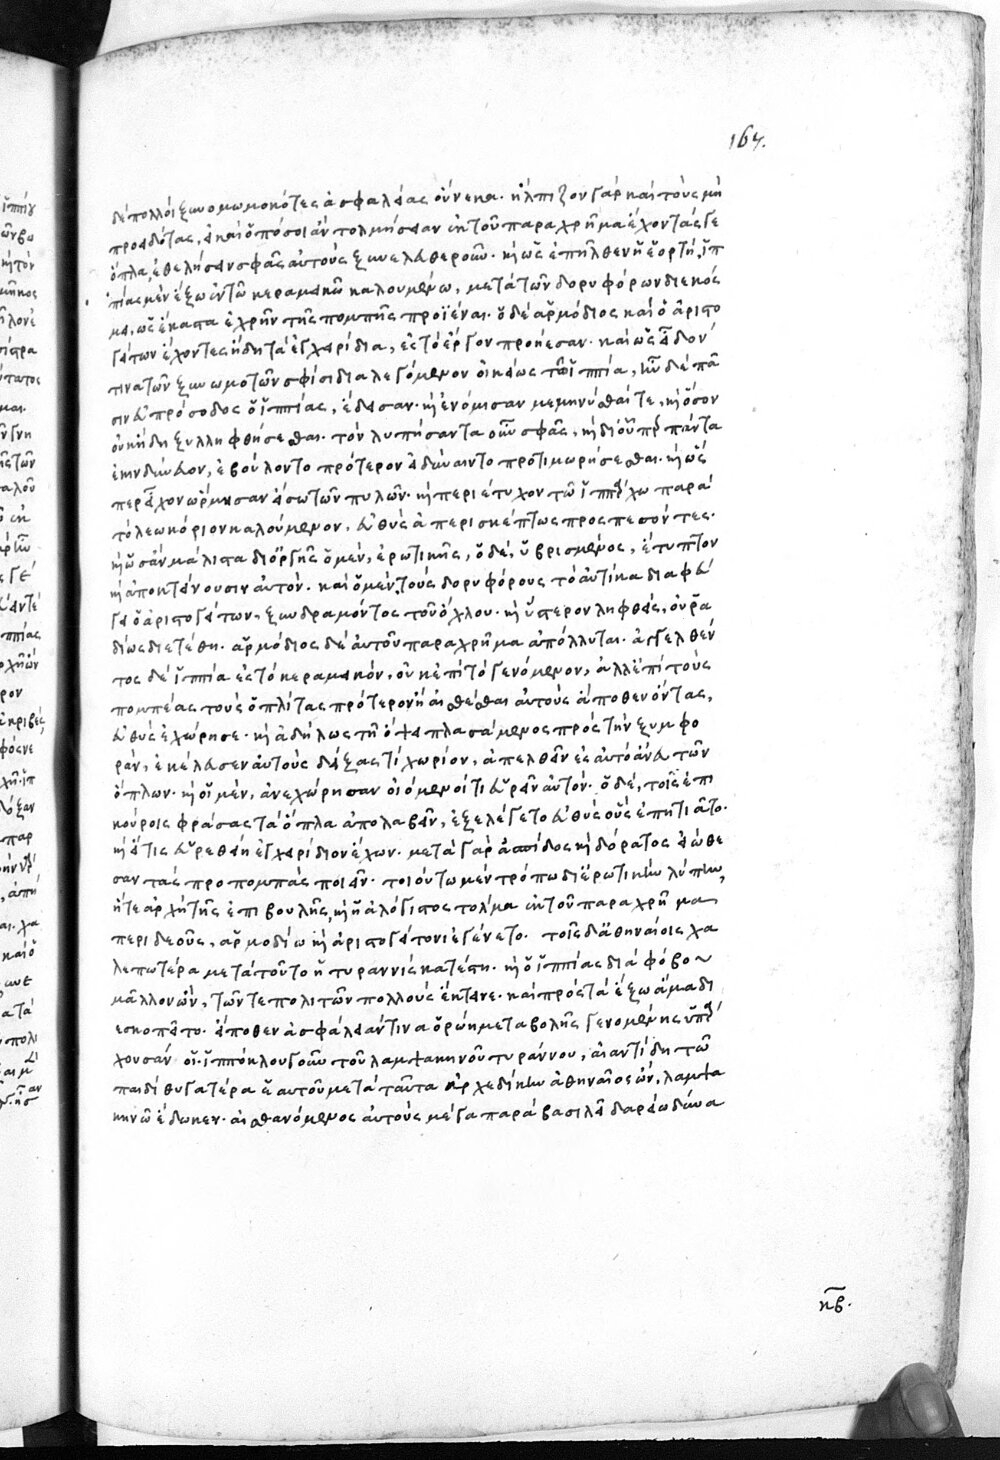 167.
δὲ πολλοὶ ξυνομωμοκότες ἀσφαλείας οὕνεκα· ἤλπιζον γὰρ καὶ τοὺς μὴ
προειδότας, εἰ καὶ ὁπόσοι ἂν τολμήσειαν ἐκ τοῦ παραχρῆμα ἔχοντάς γε
ὅπλα, ἐθελήσειν σφᾶς αὐτοὺς ξυνελευθεροῦν· καὶ ὡς ἐπῆλθεν ἡ ἑορτή, ἱπ
πίας μὲν ἔξω ἐν τῷ κεραμεικῷ καλουμένῳ, μετὰ τῶν δορυφόρων διεκόσ
μει, ὡς ἕκαστα ἐχρῆν τῆς πομπῆς προϊέναι· ὁ δὲ ἁρμόδιος καὶ ὁ ἀριστο
γείτων ἔχοντες ἤδη τὰ ἐγχειρίδια, ἐς τὸ ἔργον προῄεσαν· καὶ ὡς εἶδόν
τινα τῶν ξυνωμοτῶν σφίσι διαλεγόμενον οἰκείως τῷ ἱππίᾳ, ἦν δὲ πᾶ
σιν εὐπρόσοδος ὁ ἱππίας, ἔδεισαν· καὶ ἐνόμισαν μεμηνῦσθαί τε, καὶ ὅσον
οὐκ ἤδη ξυλληφθήσεσθαι· τὸν λυπήσαντα οὖν σφᾶς, καὶ δι' οὗπερ πάντα
ἐκινδύνευον, ἐβούλοντο πρότερον εἰ δύναιντο προτιμωρήσεσθαι· καὶ ὡσ
περ εἶχον ὥρμησαν εἴσω τῶν πυλῶν· καὶ περιέτυχον τῷ ἱππάρχῳ παρὰ
τὸ λεωκόριον καλούμενον, εὐθὺς ἀπερισκέπτως προσπεσόντες·
καὶ ὡς ἂν μάλιστα δι' ὀργῆς ὁ μὲν, ἐρωτικῆς, ὁ δὲ, ὑβρισμένος, ἔτυπτον
καὶ ἀποκτείνουσιν αὐτόν· καὶ ὁ μὲν, τοὺς δορυφόρους τὸ αὐτίκα διαφεύ
γει ὁ ἀριστογείτων, ξυνδραμόντος τοῦ ὄχλου· καὶ ὕστερον ληφθεὶς, οὐ ῥα
δίως διετέθη· ἁρμόδιος δὲ αὐτοῦ παραχρῆμα ἀπόλλυται· ἀγγελθέν
τος δὲ ἱππίᾳ ἐς τὸ κεραμεικόν, οὐκ ἐπὶ τὸ γενόμενον, ἀλλ' ἐπὶ τοὺς
πομπέας τοὺς ὁπλίτας πρότερον ἢ αἰσθέσθαι αὐτοὺς ἄποθεν ὄντας,
εὐθὺς ἐχώρησε· καὶ ἀδήλως τῇ ὄψει πλασάμενος πρὸς τὴν ξυμφο
ράν, ἐκέλευσεν αὐτοὺς δείξας τὶ χωρίον, ἀπελθεῖν ἐς αὐτὸ ἄνευ τῶν
ὅπλων· καὶ οἱ μὲν, ἀνεχώρησαν οἰόμενοί τι εὑρεῖν αὐτόν· ὁ δὲ, τοῖς ἐπι
κούροις φράσας τὰ ὅπλα ἀπολαβεῖν, ἐξελέγετο εὐθὺς οὓς ἐπῃτιᾶτο·
καὶ εἴ τις εὑρεθείη ἐγχειρίδιον ἔχων· μετὰ γὰρ ἀσπίδος καὶ δόρατος εἰώθε
σαν τὰς προπομπὰς ποιεῖν· τοιούτῳ μὲν τρόπῳ δι' ἐρωτικὴν λύπην,
ἥ τε ἀρχὴ τῆς ἐπιβουλῆς, καὶ ἡ ἀλόγιστος τόλμα ἐκ τοῦ παραχρῆμα
περιδεοῦς, ἁρμοδίῳ καὶ ἀριστογείτονι ἐγένετο· τοῖς δ' ἀθηναίοις χα
λεπωτέρα μετὰ τοῦτο ἡ τυραννὶς κατέστη· καὶ ὁ ἱππίας διὰ φόβου
μᾶλλον ὢν, τῶν τε πολιτῶν πολλοὺς ἔκτεινε· καὶ πρὸς τὰ ἔξω ἅμα δι
εσκοπεῖτο· εἴ ποθεν ἀσφάλειάν τινα ὁρῴη μεταβολῆς γενομένης ὑπάρ
χουσάν οἱ· ἱππόκλου γοῦν τοῦ λαμψακηνοῦ τυράννου, αἰαντίδῃ τῷ
παιδὶ θυγατέρα ἑαυτοῦ μετὰ ταῦτα ἀρχεδίκην ἀθηναῖος ὢν, λαμψα
κηνῷ ἔδωκεν· αἰσθανόμενος αὐτοὺς μέγα παρὰ βασιλεῖ δαρείῳ δύνα
κβ.